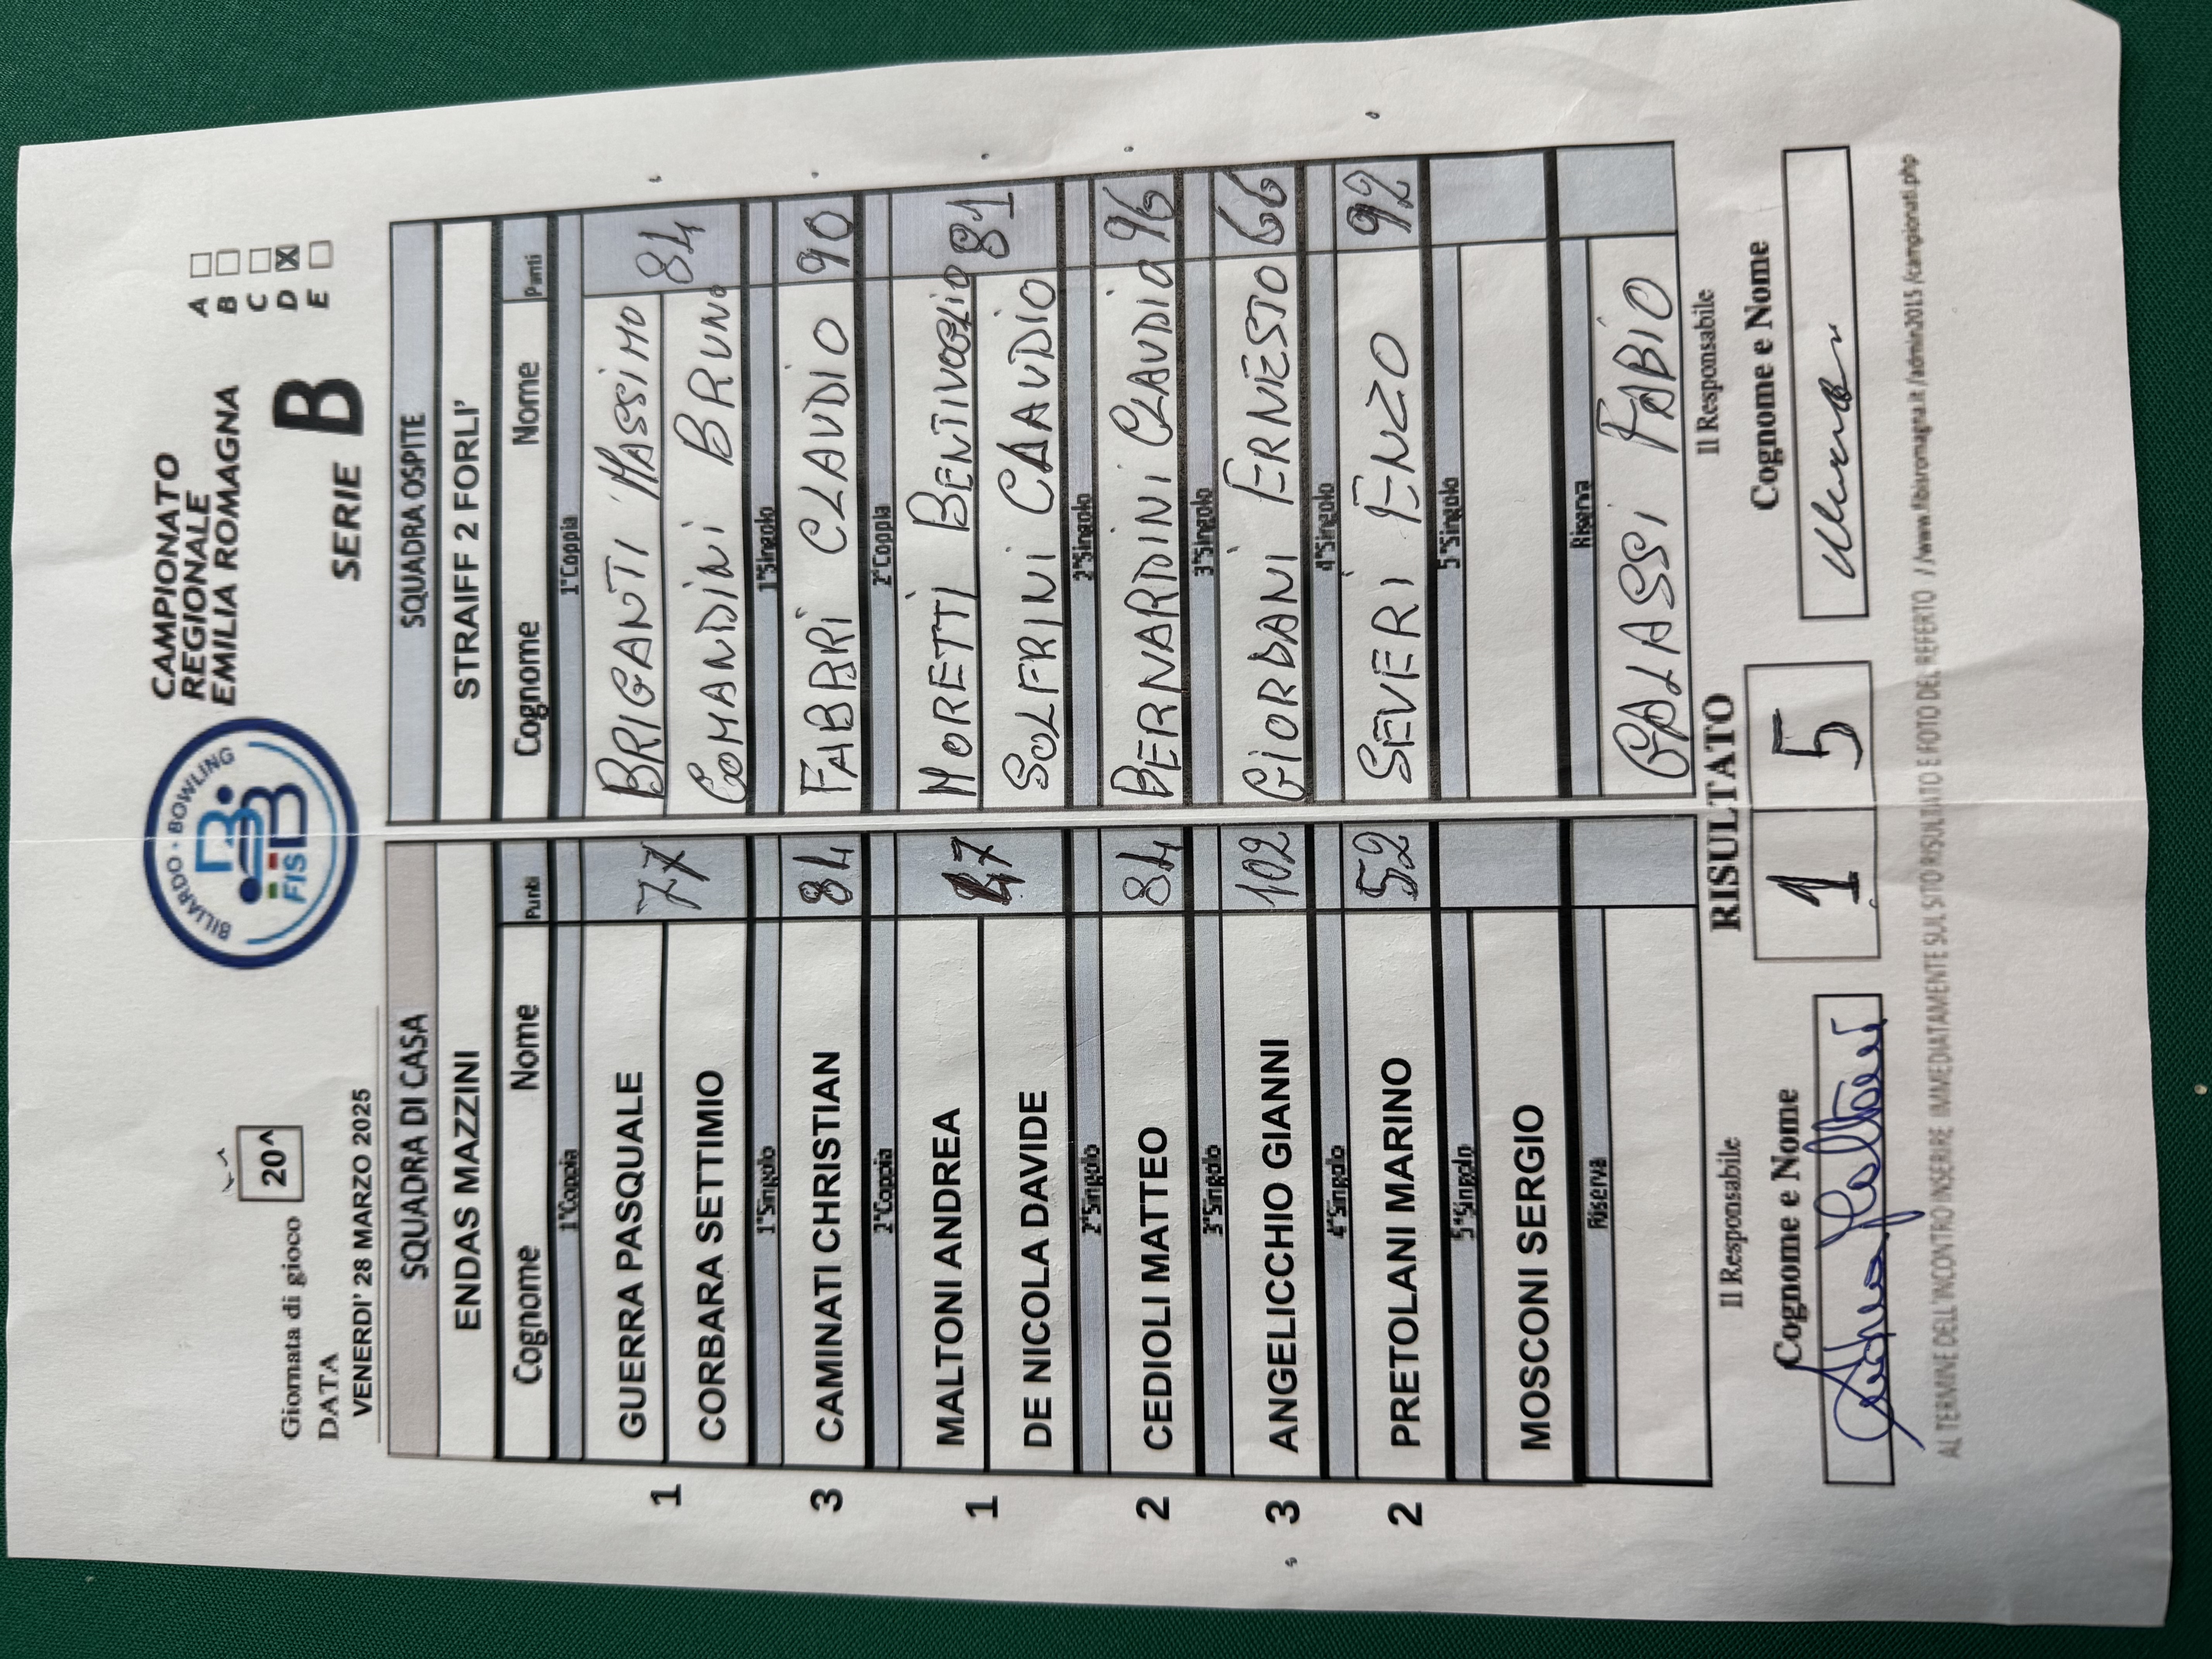 Giornata di gioco 20^
DATA
VENERDI' 28 MARZO 2025
BILIARDO - BOWLING
FISBB
CAMPIONATO
REGIONALE
EMILIA ROMAGNA
SERIE B
A
B
C
D X
E
SQUADRA DI CASA SQUADRA OSPITE
ENDAS MAZZINI STRAIFF 2 FORLI'
Cognome Nome Punti Cognome Nome Punti
1°Coppia 1°Coppia
1 GUERRA PASQUALE 77 BRIGANTI MASSIMO 84
CORBARA SETTIMIO COMANDINI BRUNO
1°Singolo 1°Singolo
3 CAMINATI CHRISTIAN 84 FABBRI CLAUDIO 90
2°Coppia 2°Coppia
1 MALTONI ANDREA 47 MORETTI BENTIVOGLIO 81
DE NICOLA DAVIDE SOLFRINI CLAUDIO
2°Singolo 2°Singolo
2 CEDIOLI MATTEO 84 BERNARDINI CLAUDIO 96
3°Singolo 3°Singolo
3 ANGELICCHIO GIANNI 102 GIORDANI ERNESTO 66
4°Singolo 4°Singolo
2 PRETOLANI MARINO 52 SEVERI ENZO 92
5°Singolo 5°Singolo
MOSCONI SERGIO
Riserva Riserva
GALASSI FABIO
Il Responsabile RISULTATO Il Responsabile
Cognome e Nome 1 5 Cognome e Nome
AL TERMINE DELL'INCONTRO INSERIRE IMMEDIATAMENTE SUL SITO RISULTATO E FOTO DEL REFERTO //www.fibisromagna.it/admin2015/campionati.php